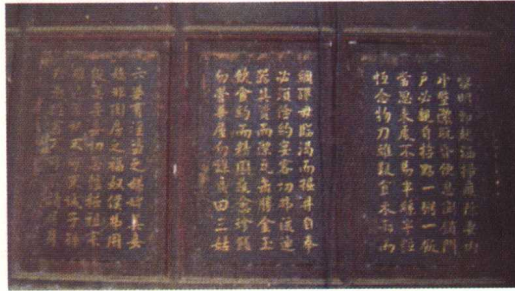 黎明即起洒掃庭除要內
外整潔既昏便息關鎖門
戶必親自檢點一粥一飯
當思來處不易半絲半縷
恆念物力維艱宜未雨而
綢繆毋臨渴而掘井自奉
必須儉約宴客切弗流連
器具質而潔瓦缶勝金玉
飲食約而精園蔬愈珍饈
勿營華屋勿謀良田三姑
六婆實淫盜之媒婢美妾
嬌非閨房之福奴僕勿用
俊美妻妾切忌艷粧祖宗
雖遠祭祀不可不誠子孫
雖愚經書不可不讀居身